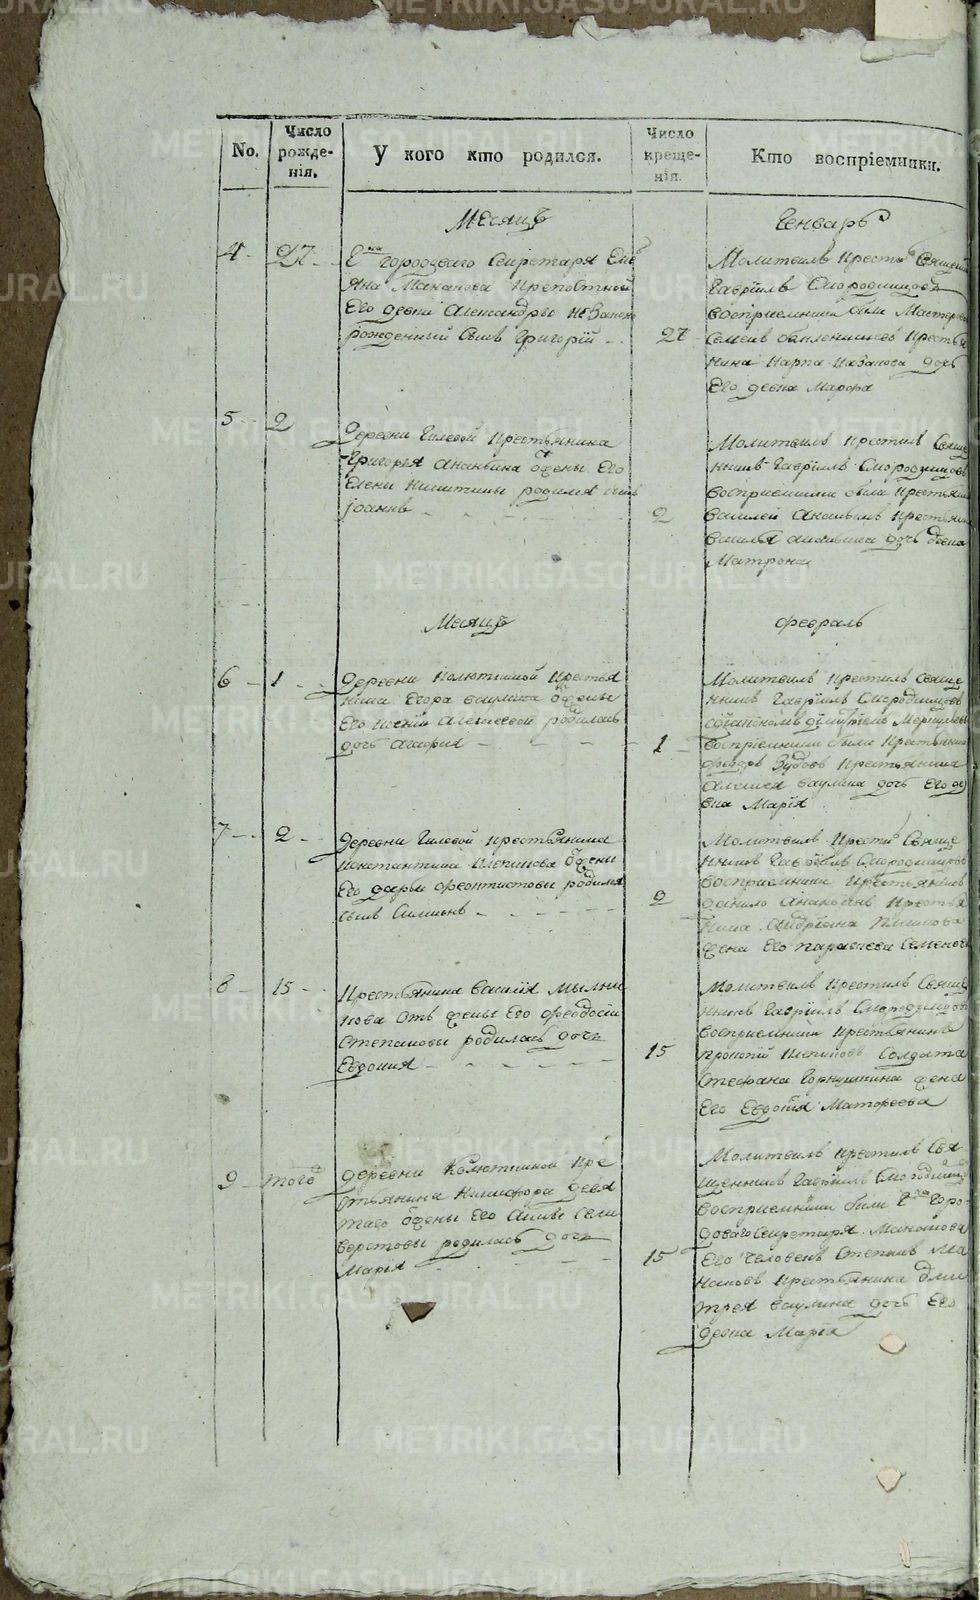 No.
Число рожде-
нiя.
У кого кто родился.
Число
креще-
нiя.
Кто воспрiемники.
Месяцъ
Генварь
4
27
городоваго Секретаря
яна Маканова Крепостной
Его девки Александры незаконно
рожденный Сынъ Григорiй
27
Молитвилъ Крестъ
Гаврiилъ Смородинцовъ
восприемники были
Крестья
нина Карпа Казанова дочь
Его девка Марфа
5
2
Деревни Гилевой Крестьянина
Григорья Ананьина Его
Елены Никитины родился сынъ
Iоаннъ
2
Молитвилъ Крестилъ Свяще
нникъ Гаврiилъ Смородинцовъ
восприемники были Крестьянинъ
василей Ананьинъ Крестьянина
василья дочь девка
Матрона
Месяцъ
февраль
6
1
Деревни Колюткиной Крестья
нина Егора ваулина
Его Алексеевой родилась
дочь Агафья
1
Молитвилъ Крестилъ Свяще
нникъ Гаврiилъ Смородинцовъ
воспрiемники были Крестьянинъ
федоръ Зубовъ Крестьянина
Алексея ваулина дочь Его де
вка Марiя
7
2
Деревни Гилевой Крестьянина
Константина
Его дарьи феоктистовы родился
сынъ Симионъ
2
Молитвилъ Крестъ Свяще
нникъ Гаврiилъ Смородинцовъ
восприемники Крестьянинъ
данило Ананьинъ Крестья
нина Андрiяна
жена Его параскева Семенова
8
15
Крестьянина василiя Мыльни
кова отъ жены Его феодосiи
Степановы родилась дочь
Евдокия
15
Молитвилъ Крестилъ Свяще
нникъ Гаврiилъ Смородинцовъ
восприемники Крестьянинъ
прокопiй Солдата
Стефана Горнушкина жена
Его Евдокiя Матфеева
9
того
деревни Колюткиной Кре
стьянина Никифора девя
таго Жены Его Анны Сели
верстовы родилась дочь
Марiя
15
Молитвилъ Крестилъ Свя
щенникъ Гаврiилъ Смородинцовъ
восприемники были Горо
доваго Секретаря Маканова
Его человекъ Степанъ Ма
кановъ Крестьянина дми
трея ваулина дочь Его
девка Марiя
METRIKI.GASO-URAL.RU